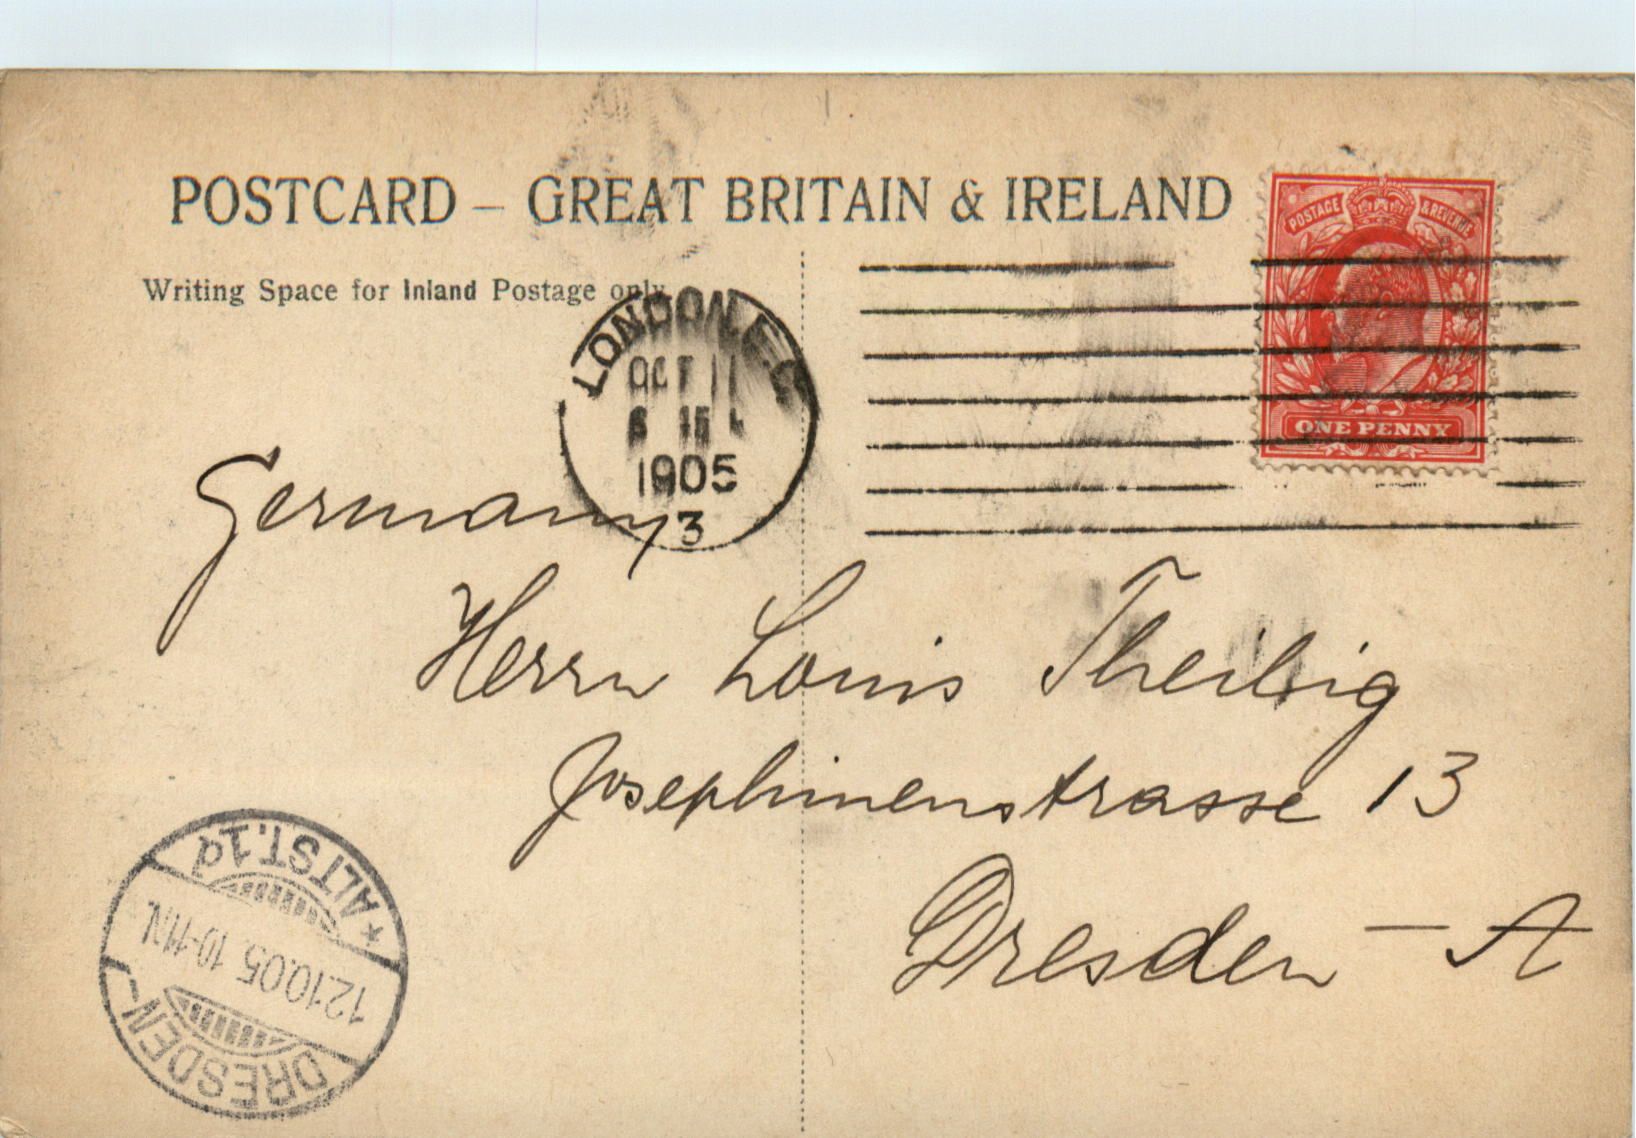 POSTCARD – GREAT BRITAIN & IRELAND
POSTAGE & REVENUE
Writing Space for Inland Postage only
LONDON. E.C
OCT 11
1905
3
ONE PENNY
Germany
Herrn Louis Theilig
Josephinenstrasse 13
Dresden – A
DRESDEN-
12.10.05. 10-11N.
* ALTST. 1d